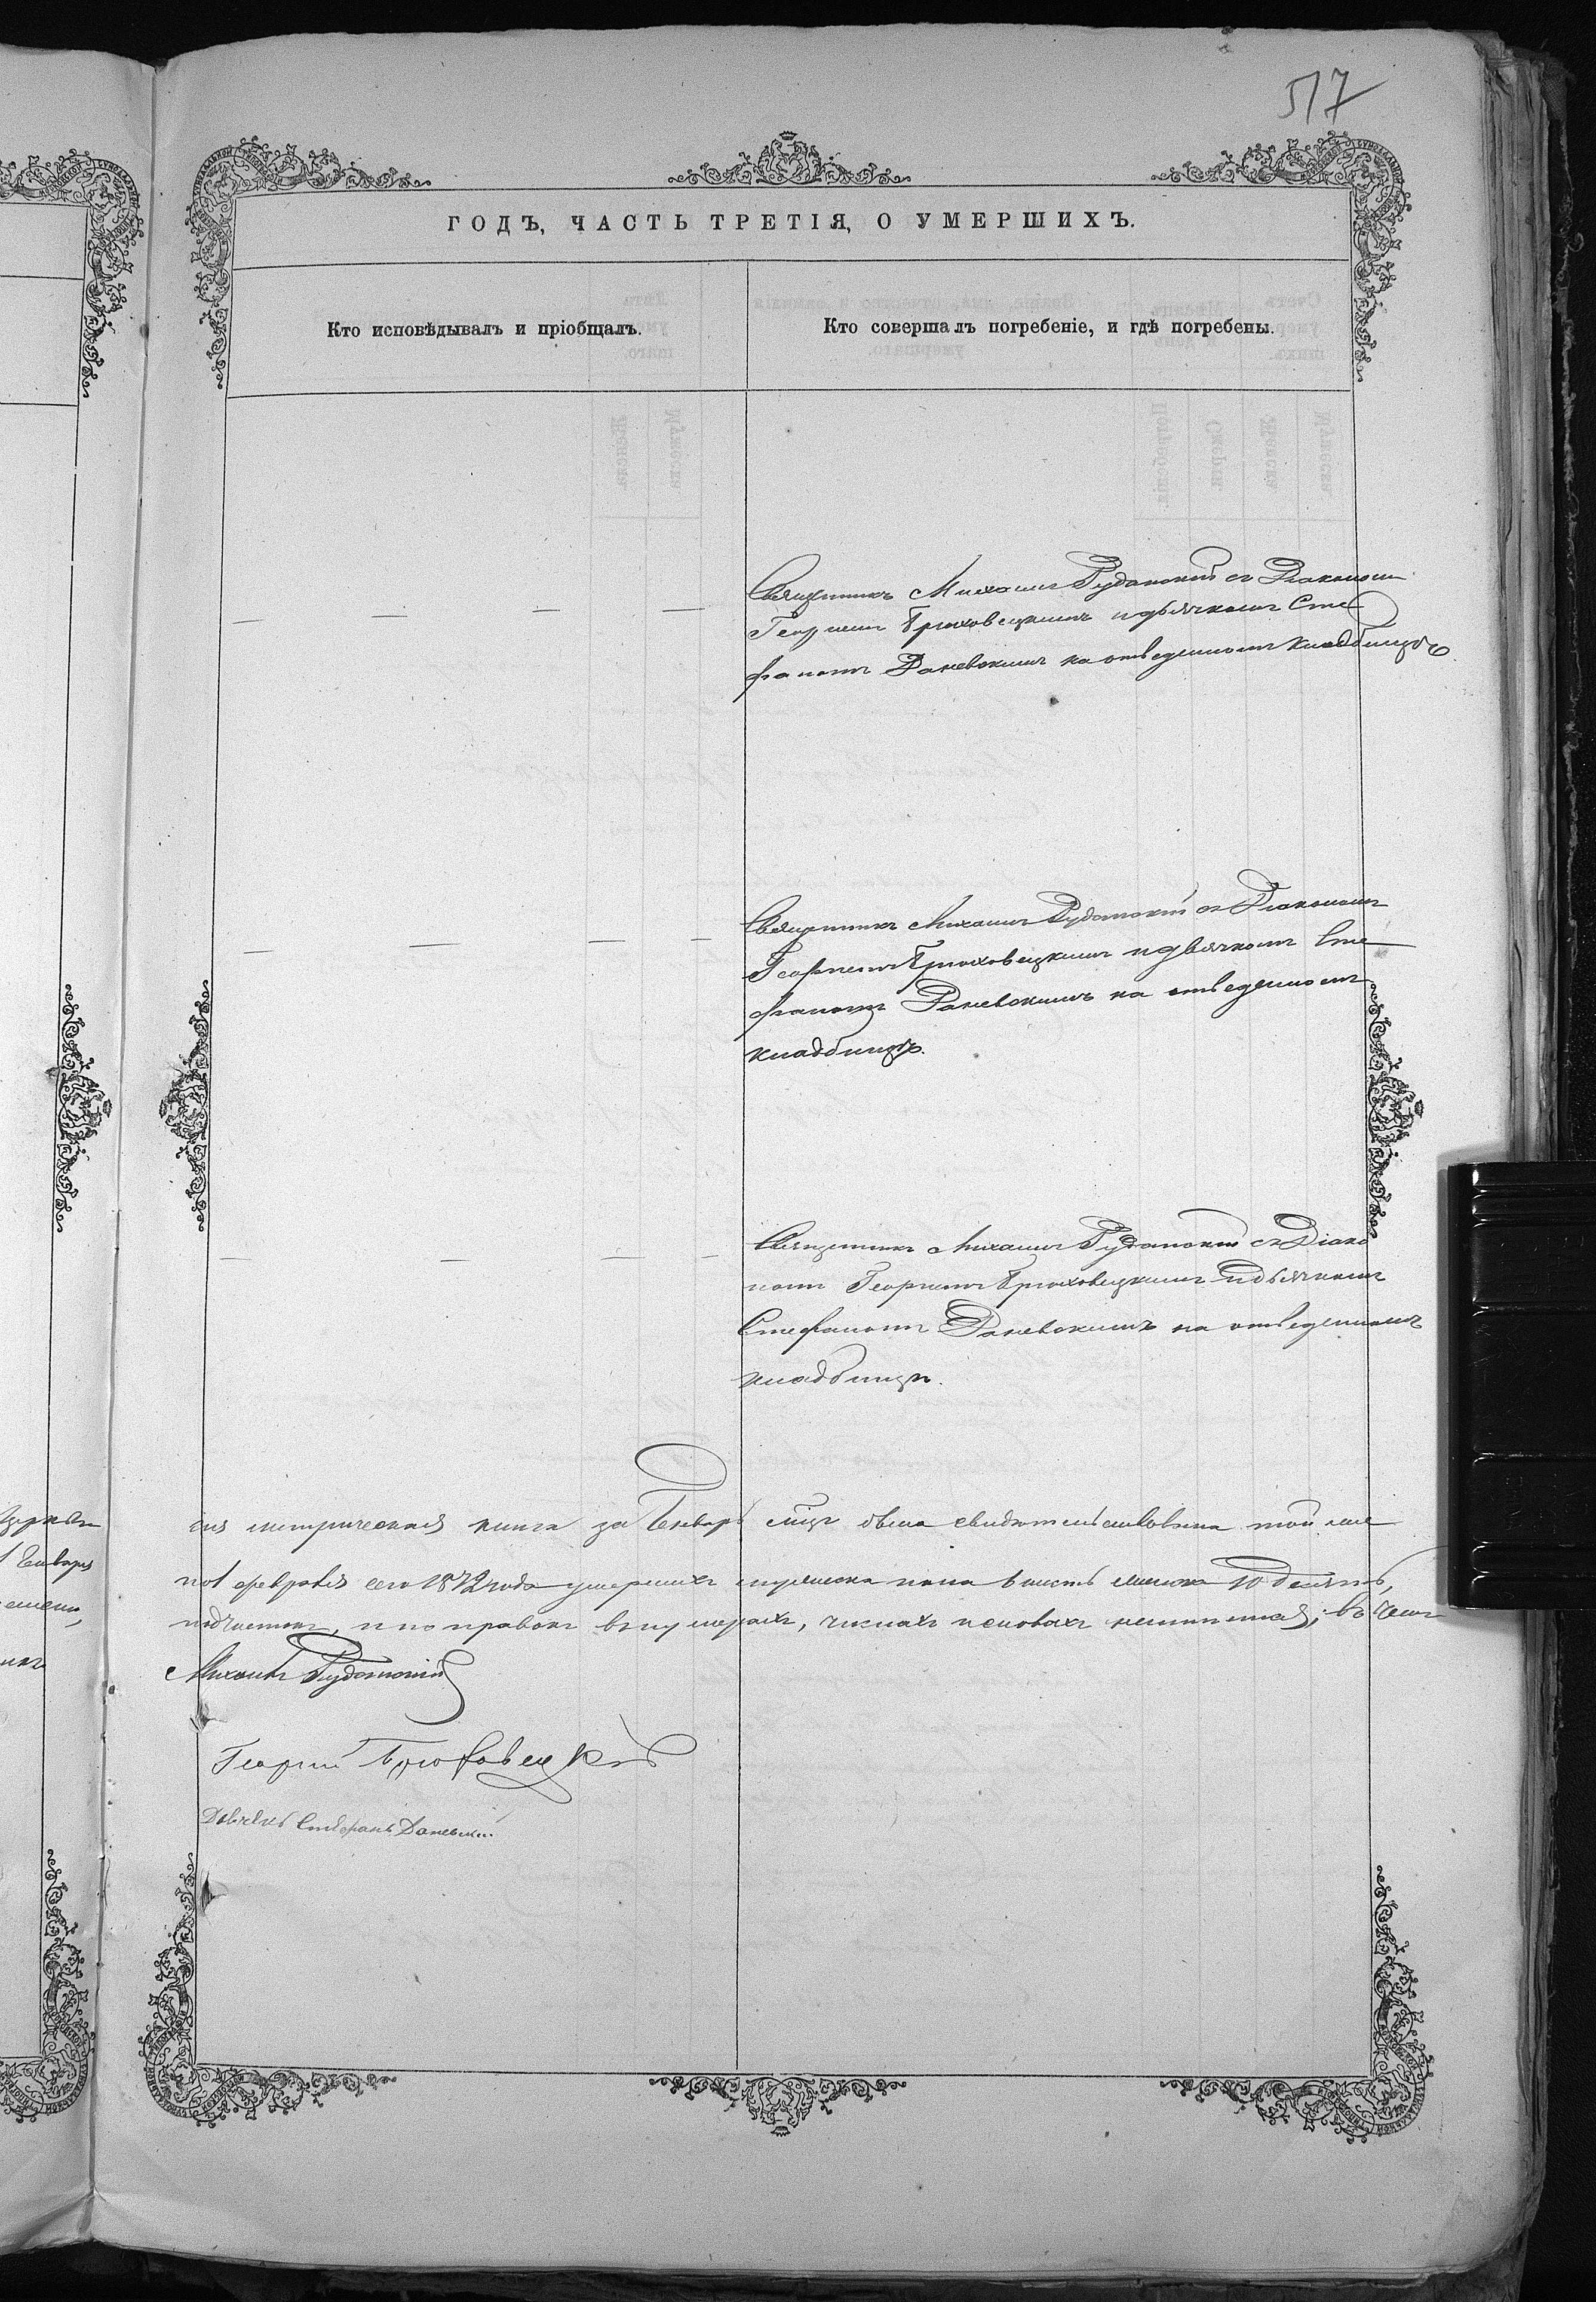 517
ГОДЪ, ЧАСТЬ ТРЕТІЯ, О УМЕРШИХЪ.
Кто исповѣдывалъ и пріобщалъ.
Кто совершалъ погребеніе, и гдѣ погребены.
Священникъ Михаилъ Руданскій съ Діакономъ
Георгіемъ Брюховецкимъ и дьячкомъ Сте
фаномъ Даневскимъ на отведенномъ кладбищѣ
Священникъ Михаилъ Руданскій съ Діакономъ
Георгіемъ Брюховецкимъ и дьячкомъ Сте
фаномъ Даневскимъ на отведенномъ
кладбищѣ.
Священникъ Михаилъ Руданскій съ Діако
номъ Георгіемъ Брюховецкимъ и дьячкомъ
Стефаномъ Даневскимъ на отведенномъ
кладбищѣ.
сія метрическая книга за Генварь была свидѣтельствована
февраля сего 1872 года умершихъ мужеска пола женска 10 десять,
подчистокъ, и поправокъ въ нумерахъ, числахъ и словахъ въ чемъ
Михаилъ Руданскій
Георгій Брюховецкій
Дьячекъ Стефанъ Даневскій